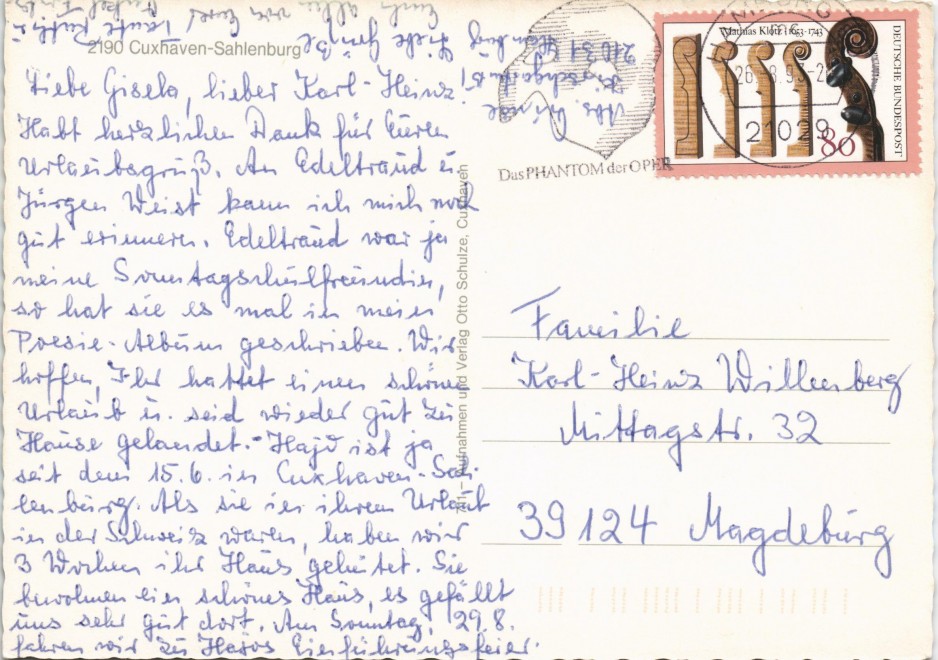 2190 Cuxhaven-Sahlenburg
Liebe Gisela, lieber Karl-Heinz!
Habt herzlichen Dank für Euren
Urlaubsgruß. An Edeltraud u.
Jürgen Weist kann ich mich noch
gut erinnern. Edeltraud war ja
meine Sonntagsschulfreundin,
so hat sie es mal in mein
Poesie-Album geschrieben. Wir
hoffen, Ihr hattet einen schönen
Urlaub u. seid wieder gut zu
Hause gelandet. - Hajo ist ja
seit dem 15.6. in Cuxhaven-Sah-
lenburg. Als sie in ihrem Urlaub
in der Schweiz waren, haben wir
3 Wochen ihr Haus gehütet. Sie
bewohnen ein schönes Haus, es gefällt
uns sehr gut dort. Am Sonntag, 29.8.
fahren wir zu Hajos Einführungsfeier.
Liebe Grüße
Euch allen von Eurer
Tante Ruth
Abs.
21031 Hamburg
7/1 – Aufnahmen und Verlag Otto Schulze, Cuxhaven
Das PHANTOM der OPER
Mathias Klotz 1653-1743
DEUTSCHE BUNDESPOST
80
21029
Familie
Karl-Heinz Willenberg
Mittagstr. 32
39124 Magdeburg